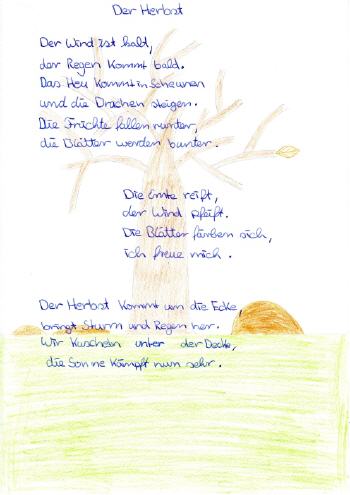 Der Herbst
Der Wind ist kalt,
der Regen kommt bald.
Das Heu kommt in Scheunen
und die Drachen steigen.
Die Früchte fallen runter,
die Blätter werden bunter.
Die Ernte reift,
der Wind pfeift.
Die Blätter färben sich,
ich freue mich.
Der Herbst kommt um die Ecke,
bringt Sturm und Regen her.
Wir kuscheln unter der Decke,
die Sonne kämpft nun sehr.